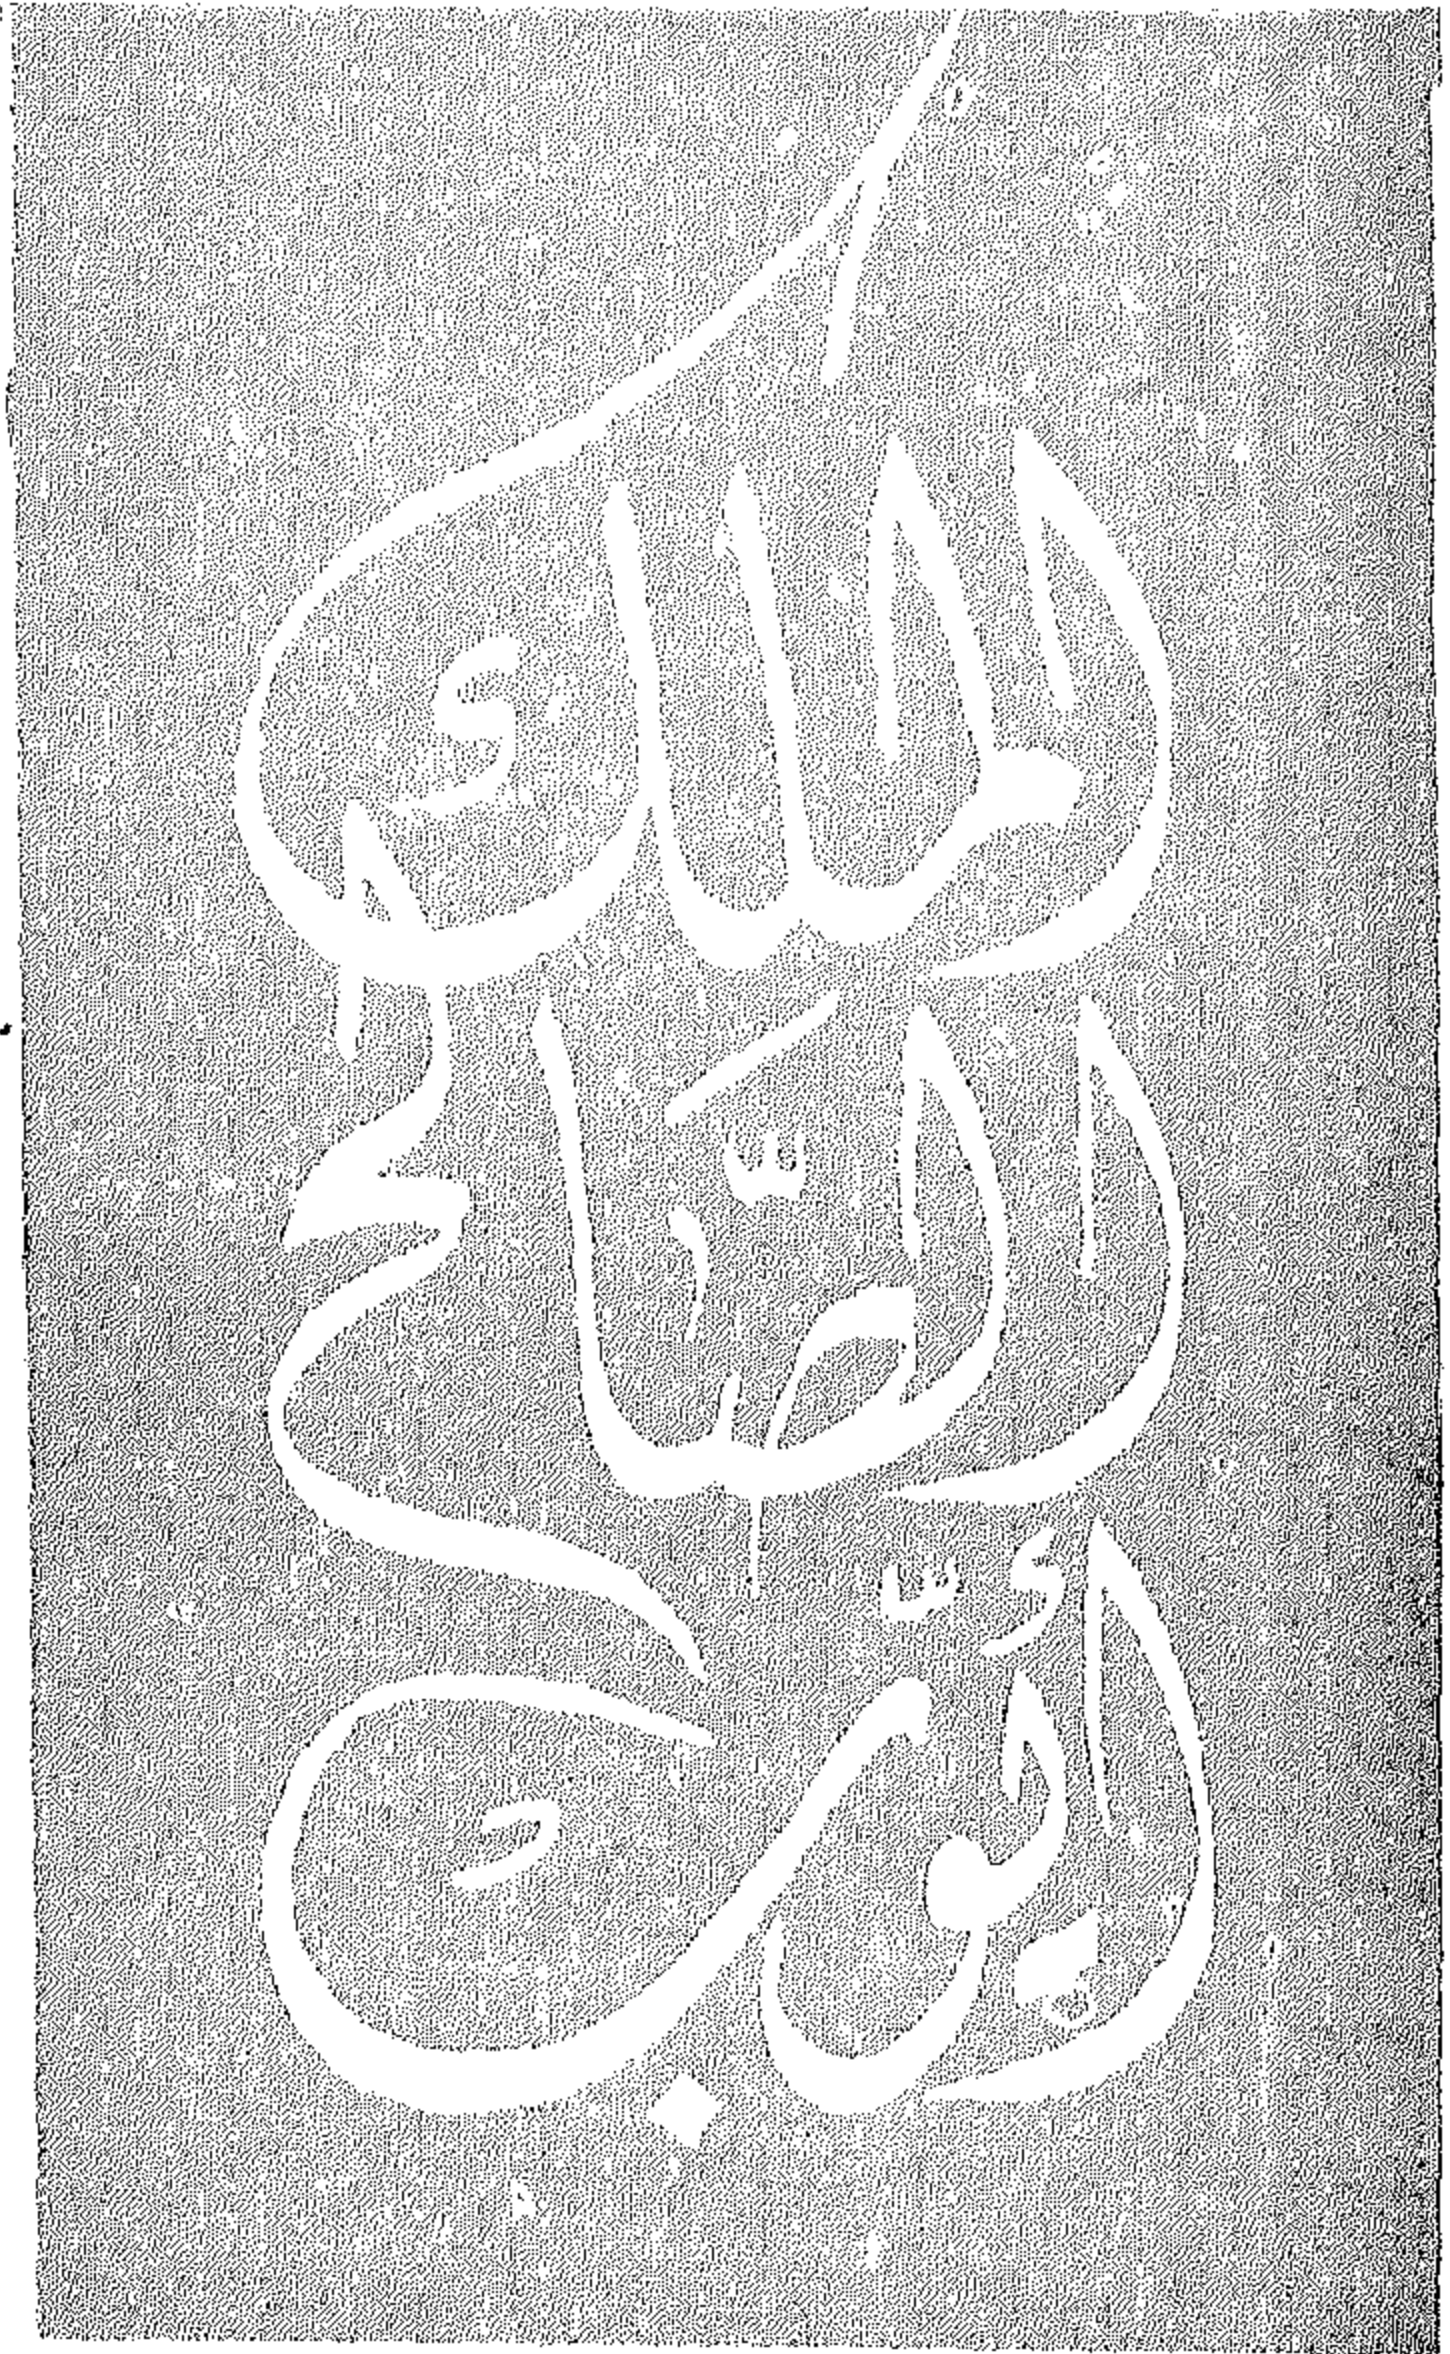 الملك
الصالح
أيوب